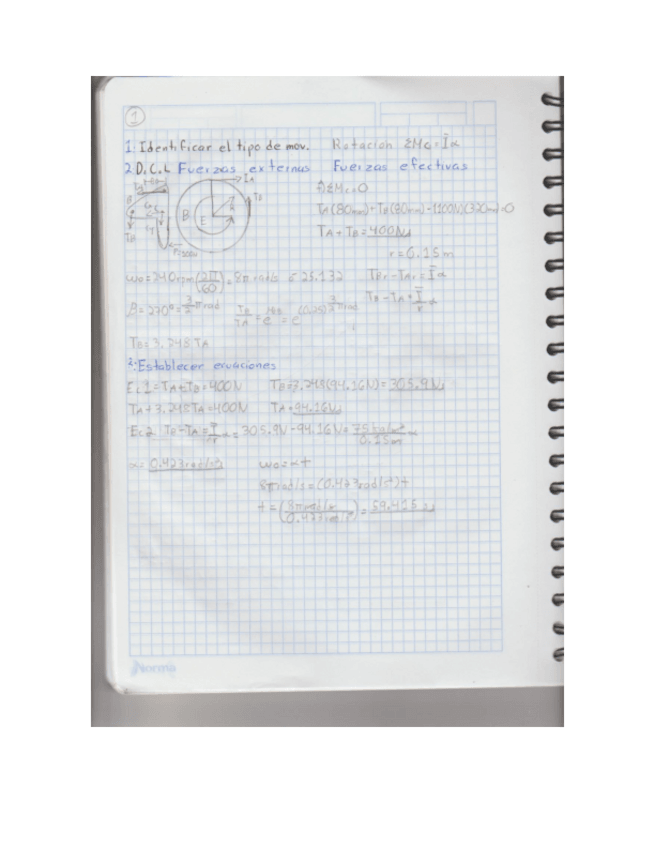 1
1. Identificar el tipo de mov. Rotación ΣMG = Īα
2. D.C.L Fuerzas externas Fuerzas efectivas
ΣMc=0
TA(80mm)+TB(80mm)-(100N)(320mm)=0
TA + TB = 400N
r = 0.15m
ω0=240rpm(2π/60)=8π rad/s ó 25.132 TBr - TAr = Īα
β=270°=3/2 π rad TB/TA = e^μβ = e^(0.25)3/2π rad TB - TA = Ī/r α
TB=3.248 TA
3. Establecer ecuaciones
Ec1=TA+TB=400N TB=3.248(94.16N)=305.9N
TA+3.248TA=400N TA=94.16N
Ec2 TB-TA=Ī/r α = 305.9N-94.16N= 75kg·m²/0.15m α
α=0.423rad/s² ω0=αt
8πrad/s=(0.423rad/s²)t
t=(8πrad/s / 0.423rad/s²)=59.415 s
Norma